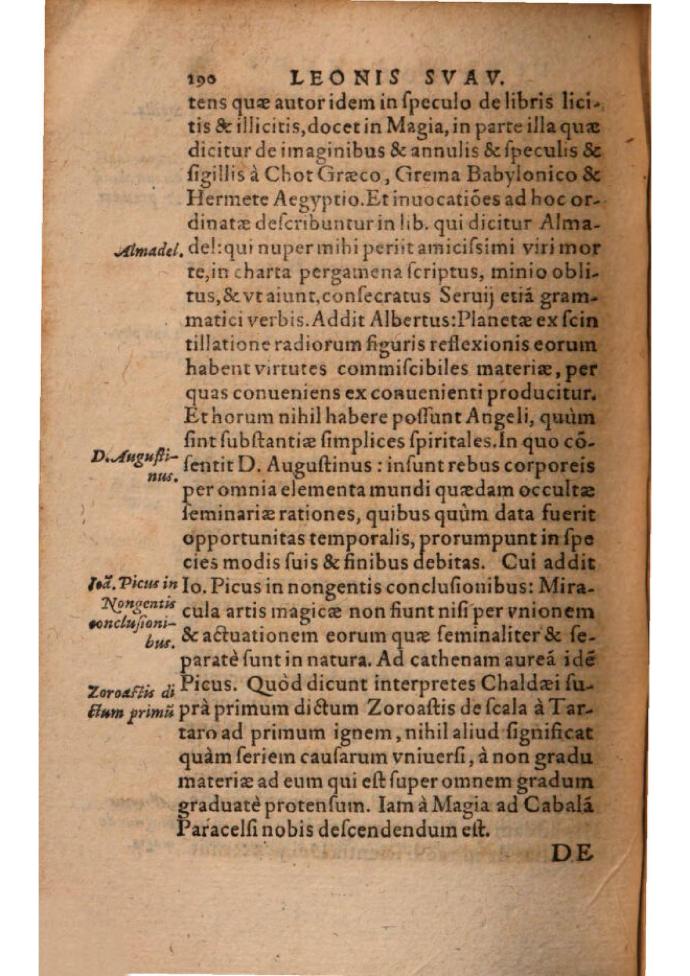 190 LEONIS SVAV.
tens quæ autor idem in ſpeculo de libris lici-
tis & illicitis, docet in Magia, in parte illa quæ
dicitur de imaginibus & annulis & ſpeculis &
ſigillis à Chot Græco, Grema Babylonico &
Hermete Aegyptio. Et inuocatiões ad hoc or-
dinatæ deſcribuntur in lib. qui dicitur Alma-
Almadel. del: qui nuper mihi periit amiciſsimi viri mor
te, in charta pergamena ſcriptus, minio obli-
tus, & vt aiunt, conſecratus Seruij etiã gram-
matici verbis. Addit Albertus: Planetæ ex ſcin
tillatione radiorum figuris reflexionis eorum
habent virtutes commiſcibiles materiæ, per
quas conueniens ex conuenienti producitur.
Et horum nihil habere poſſunt Angeli, quùm
ſint ſubſtantiæ ſimplices ſpiritales. In quo cõ-
D. Auguſti-
nus.
ſentit D. Auguſtinus : inſunt rebus corporeis
per omnia elementa mundi quædam occultæ
ſeminariæ rationes, quibus quùm data fuerit
opportunitas temporalis, prorumpunt in ſpe
cies modis ſuis & finibus debitas. Cui addit
Ioã. Picus in
Nongentis
concluſioni-
bus.
Io. Picus in nongentis concluſionibus: Mira-
cula artis magicæ non fiunt niſi per vnionem
& actuationem eorum quæ ſeminaliter & ſe-
paratè ſunt in natura. Ad cathenam aureã idẽ
Zoroaſtis di
ctum primũ
Picus. Quòd dicunt interpretes Chaldæi ſu-
prà primum dictum Zoroaſtis de ſcala à Tar-
taro ad primum ignem, nihil aliud ſignificat
quàm ſeriem cauſarum vniuerſi, à non gradu
materiæ ad eum qui eſt ſuper omnem gradum
graduatè protenſum. Iam à Magia ad Cabalã
Paracelſi nobis deſcendendum eſt.
DE